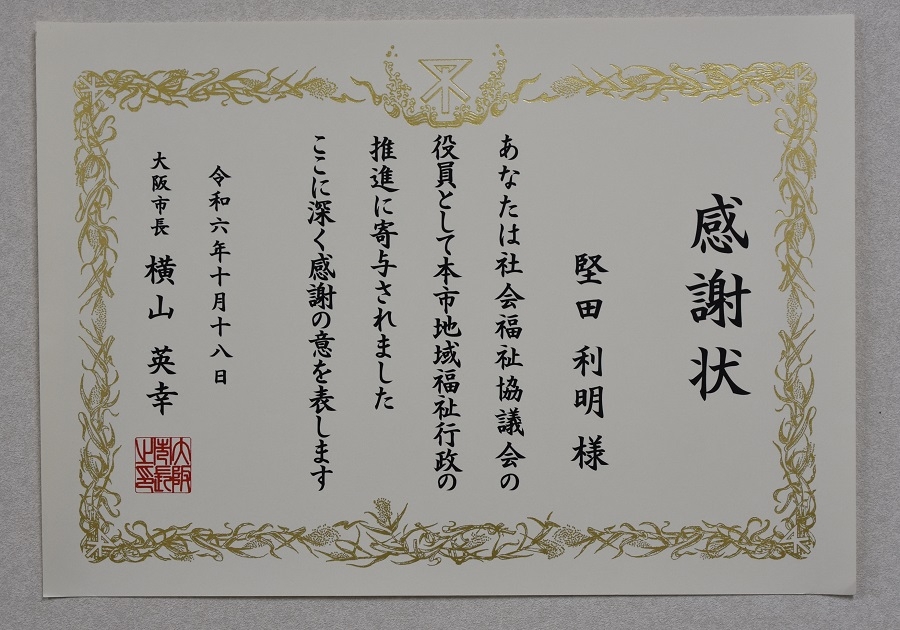 感謝状
堅田 利明 様
あなたは社会福祉協議会の
役員として本市地域福祉行政の
推進に寄与されました
ここに深く感謝の意を表します
令和六年十月十八日
大阪市長 横山 英幸
大阪市長之印